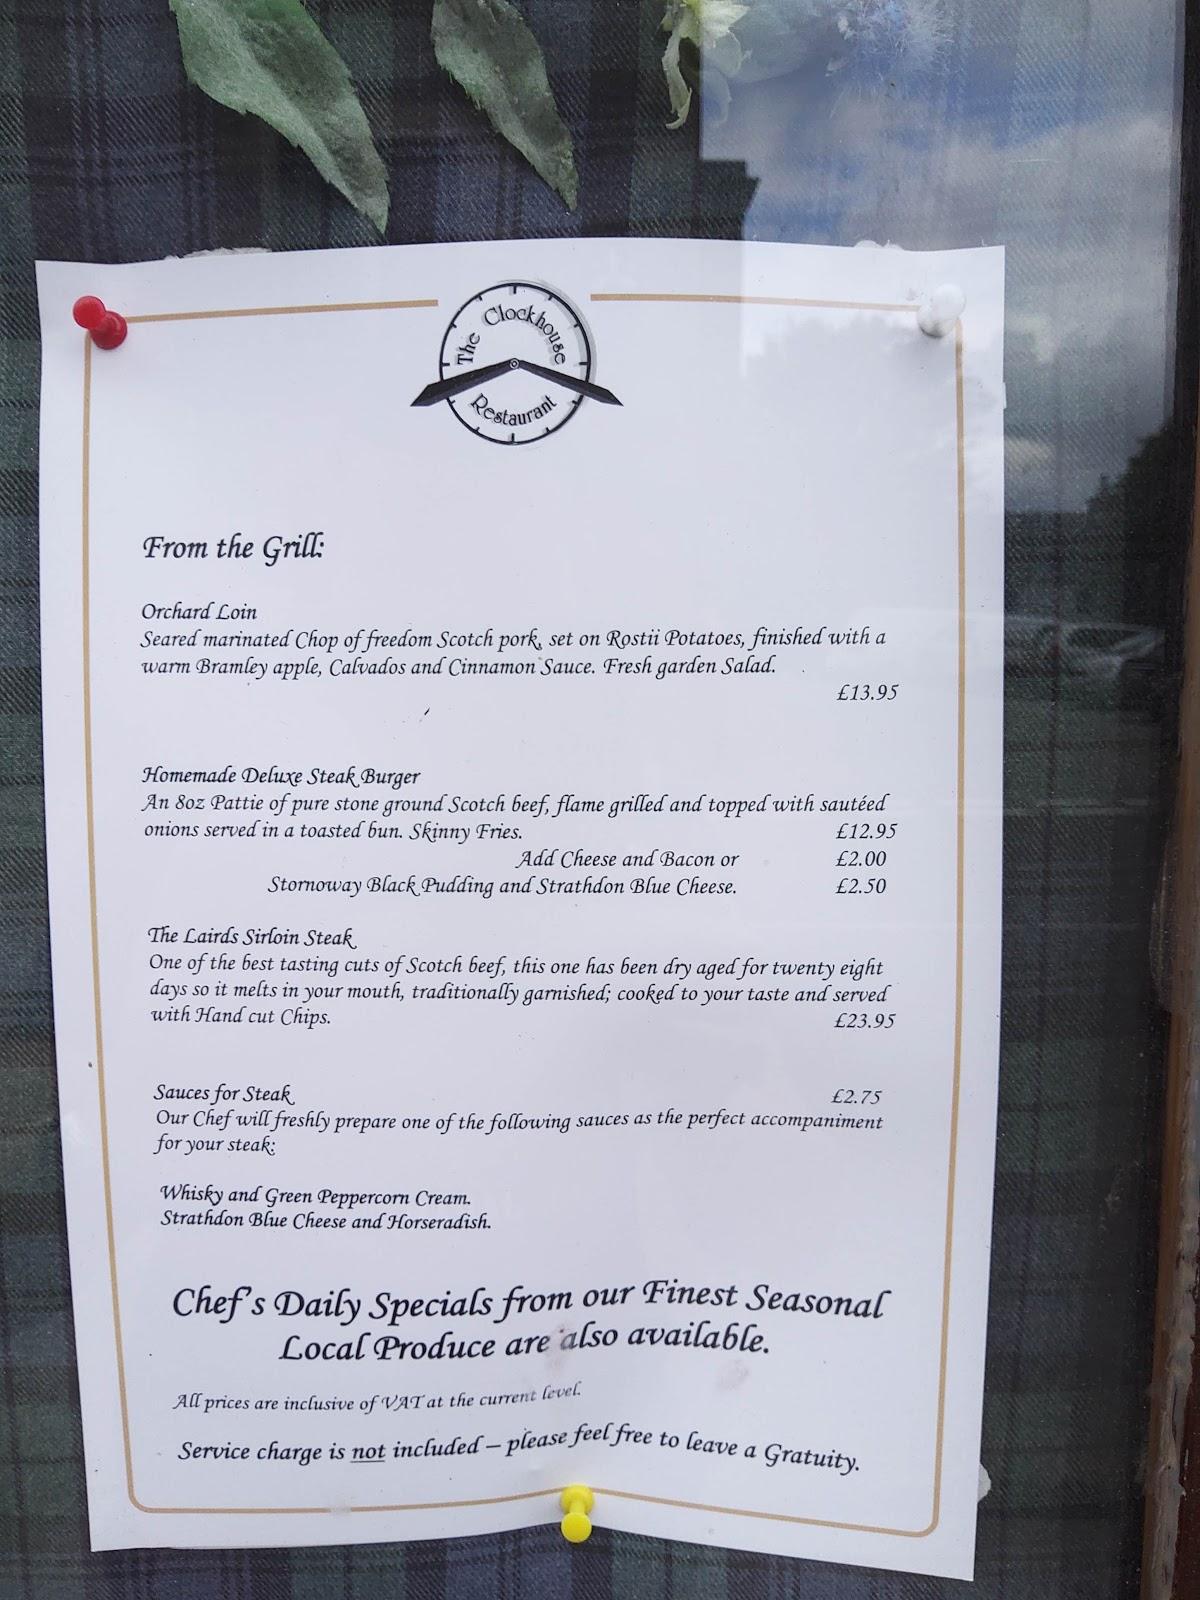 The Clockhouse
Restaurant
From the Grill:
Orchard Loin
Seared marinated Chop of freedom Scotch pork, set on Rostii Potatoes, finished with a
warm Bramley apple, Calvados and Cinnamon Sauce. Fresh garden Salad.
£13.95
Homemade Deluxe Steak Burger
An 8oz Pattie of pure stone ground Scotch beef, flame grilled and topped with sautéed
onions served in a toasted bun. Skinny Fries. £12.95
Add Cheese and Bacon or £2.00
Stornoway Black Pudding and Strathdon Blue Cheese. £2.50
The Lairds Sirloin Steak
One of the best tasting cuts of Scotch beef, this one has been dry aged for twenty eight
days so it melts in your mouth, traditionally garnished; cooked to your taste and served
with Hand cut Chips. £23.95
Sauces for Steak £2.75
Our Chef will freshly prepare one of the following sauces as the perfect accompaniment
for your steak:
Whisky and Green Peppercorn Cream.
Strathdon Blue Cheese and Horseradish.
Chef's Daily Specials from our Finest Seasonal
Local Produce are also available.
All prices are inclusive of VAT at the current level.
Service charge is not included – please feel free to leave a Gratuity.